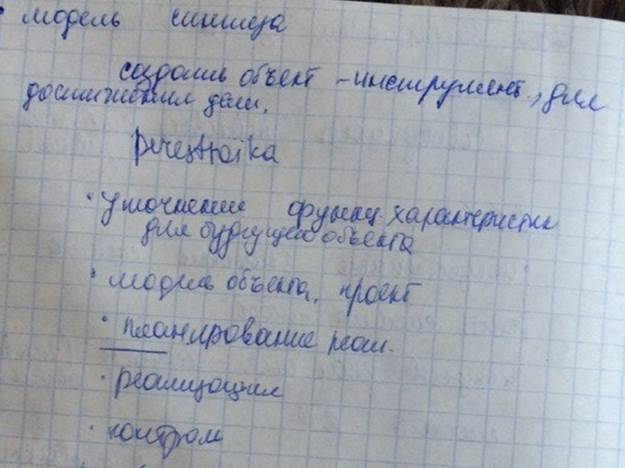 • модель синтеза
создать объект - инструмент, для
достижения цели.
perestroika
• Уточнение функц. характеристик
для будущего объекта
• модель объекта, проект
• планирование реал.
• реализация
• контроль